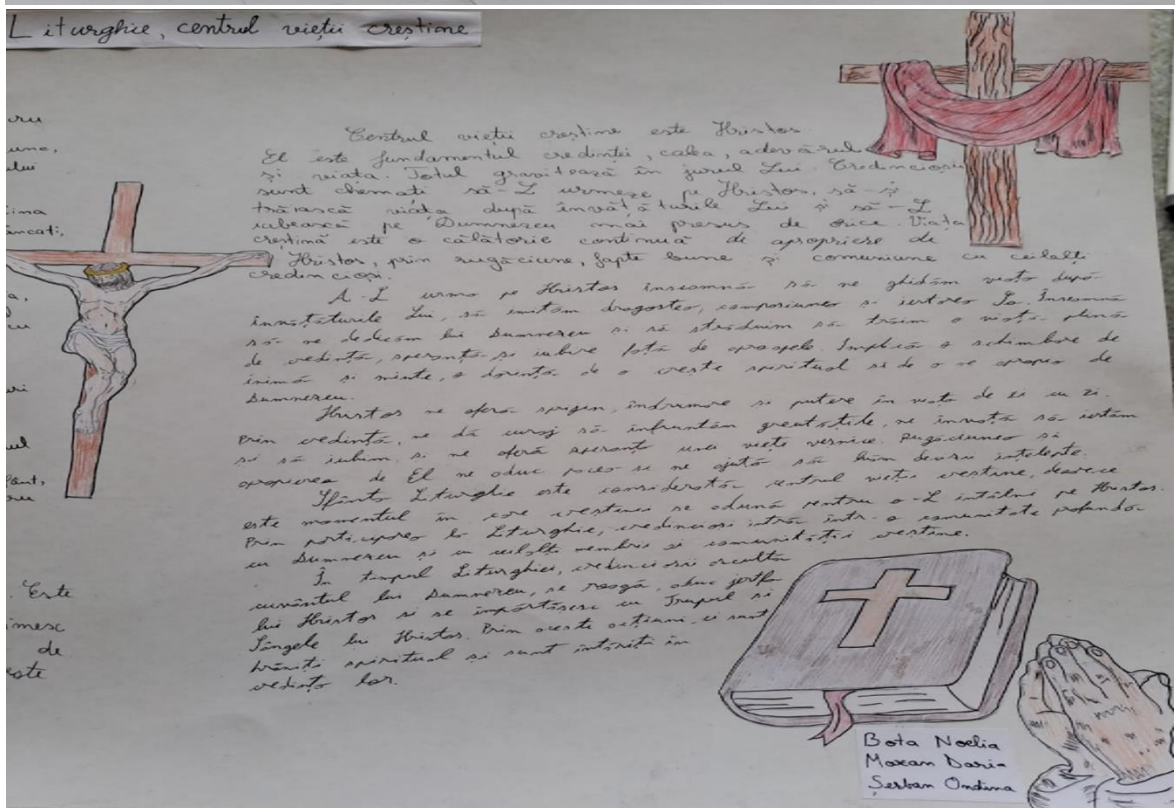 Liturghie, centrul vieții creștine
cru
une,
ului
ima
âncați,
a,
cu
ari
ul
fânt,
oru
. Este
imesc
de
este
Centrul vieții creștine este Hristos.
El este fundamentul credinței, calea, adevărul
și viața. Totul gravitează în jurul Lui. Credincioșii
sunt chemați să-L urmeze pe Hristos, să-și
trăiască viața după învățăturile Lui și să-L
iubească pe Dumnezeu mai presus de orice. Viața
creștină este o călătorie continuă de apropriere de
Hristos, prin rugăciune, fapte bune și comuniune cu ceilalți
credincioși.
A-L urma pe Hristos înseamnă să ne ghidăm viața după
învățăturile Lui, să imităm dragostea, compasiunea și iertarea Sa. Înseamnă
să ne dedicăm lui Dumnezeu și să străduim să trăim o viață plină
de credință, speranță și iubire față de aproapele. Implică o schimbare de
inimă și minte, o dorință de a crește spiritual și de a ne apropia de
Dumnezeu.
Hristos ne oferă sprijin, îndrumare și putere în viața de zi cu zi.
Prin credință, ne dă curaj să înfruntăm greutățile, ne învață să iertăm
și să iubim, și ne oferă speranța unei vieți veșnice. Rugăciunea și
apropierea de El ne aduc pacea și ne ajută să luăm decizii înțelepte.
Sfânta Liturghie este considerată centrul vieții creștine, deoarece
este momentul în care creștinii se adună pentru a-L întâlni pe Hristos.
Prin participarea la Liturghie, credincioșii intră într-o comunitate profundă
cu Dumnezeu și cu ceilalți membrii ai comunității creștine.
În timpul Liturghiei, credincioșii ascultă
cuvântul lui Dumnezeu, se roagă, aduc jertfa
lui Hristos și se împărtășesc cu Trupul și
Sângele lui Hristos. Prin aceste acțiuni, ei sunt
hrăniți spiritual și sunt întăriți în
credința lor.
Bota Noelia
Moxan Daria
Șerban Ondina